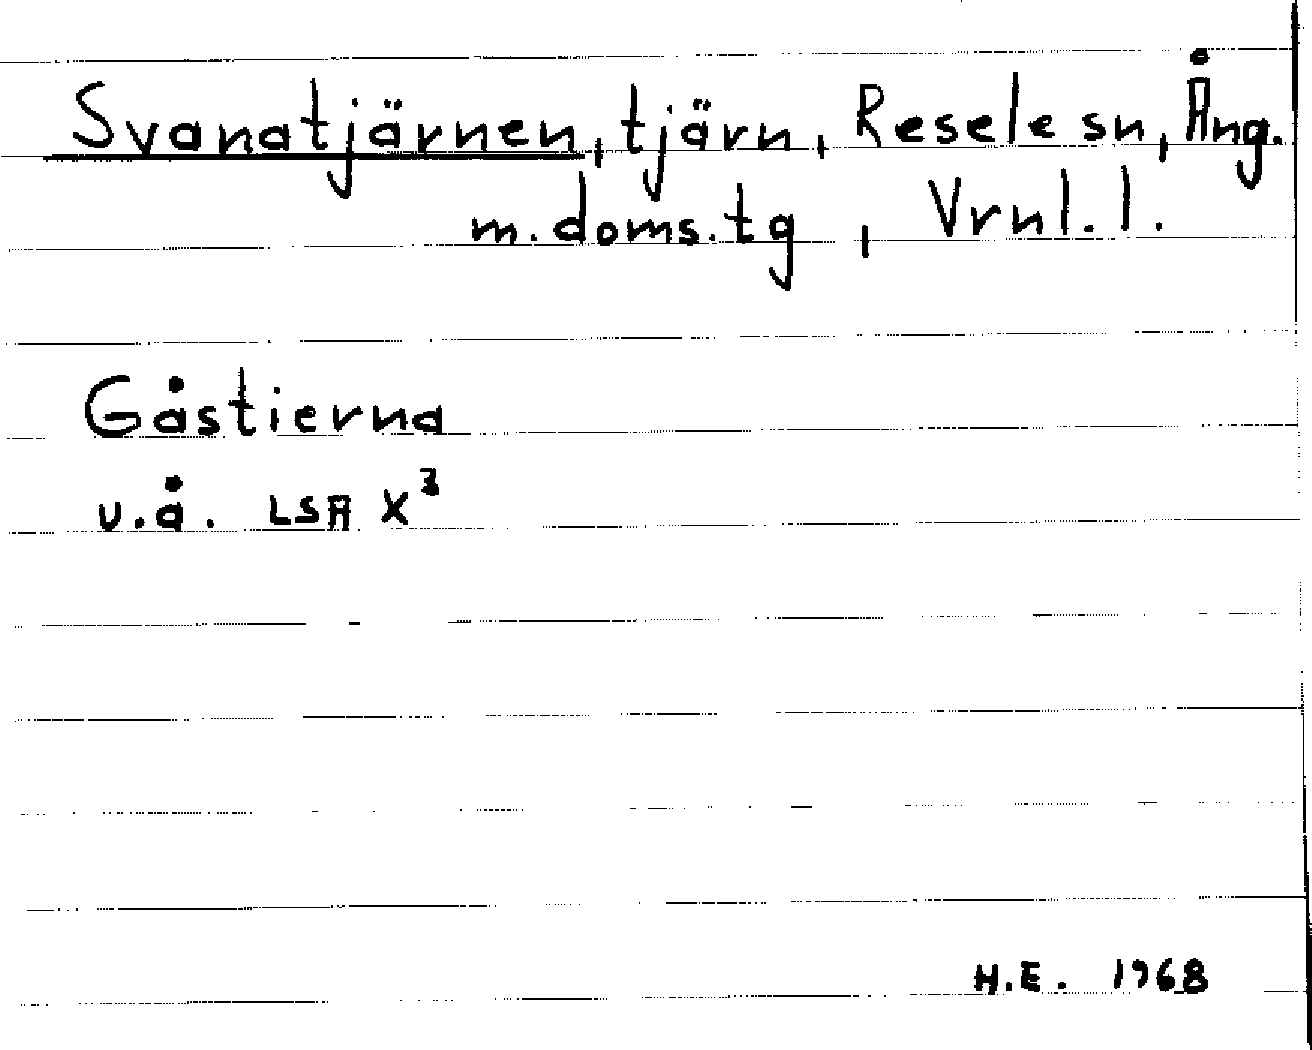 Svanatjärnen, tjärn, Resele sn, Ång.
m. doms. tg, Vrnl. l.
Gåstierna
u.å. LSA X³
H.E. 1968